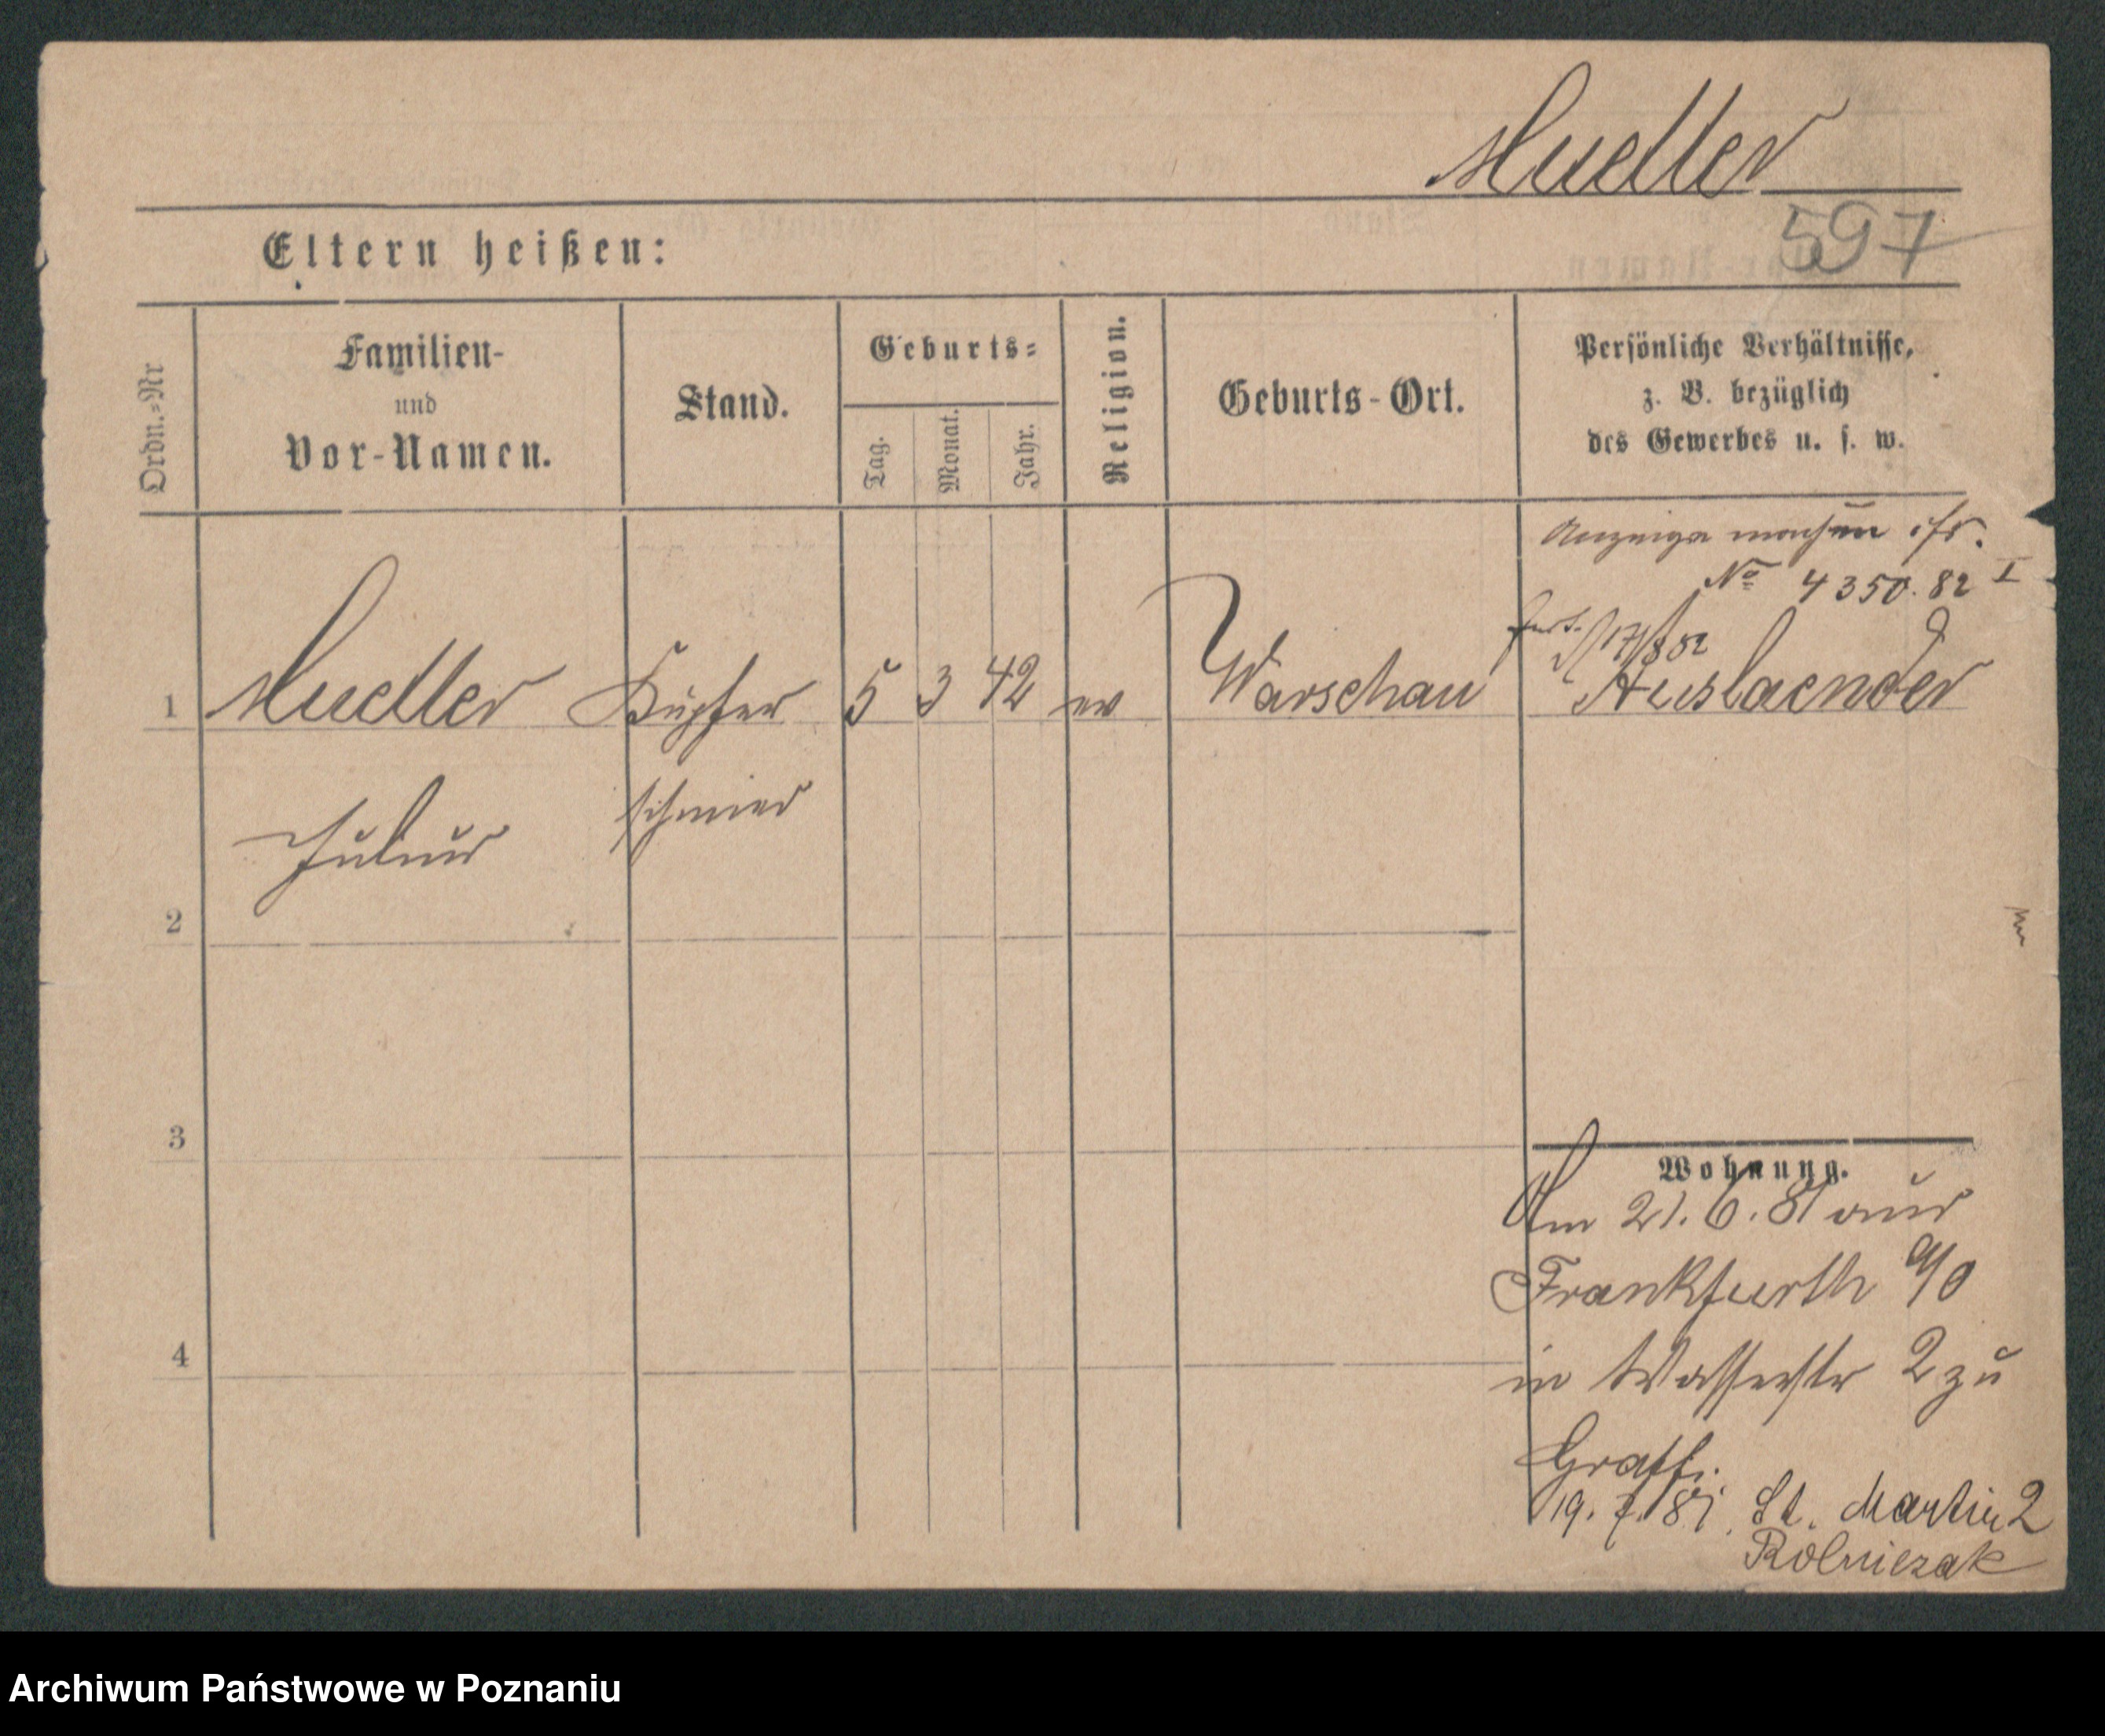 Mueller
597
Eltern heißen:
Ordn.=Nr
Familien-
und
Vor-Namen.
Stand.
Geburts=
Tag.
Monat.
Jahr.
Religion.
Geburts-Ort.
Persönliche Verhältnisse,
z. B. bezüglich
des Gewerbes u. s. w.
Anzeige machen
No 4350. 82 I
17/8 82
1 Mueller Kupfer 5 3 42 ev Warschau Auslaender
Julius schmied
2
3
4
Wohnung.
Am 21. 6. 81 aus
Frankfurth a/O
in Wasserstr 2 zu
19. 7. 81. St. Martin 2
Rolniczak
Archiwum Państwowe w Poznaniu